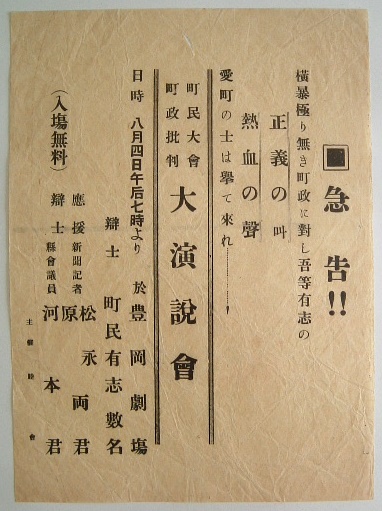 急告!!
横暴極り無き町政に對し吾等有志の
正義の叫
熱血の聲
愛町の士は擧て來れ…………!
町民大會
町政批判
大演説會
日時 八月四日午后七時より 於豊岡劇場
辯士 町民有志數名
應援 新聞記者 松永 原 両君
辯士 縣會議員 河本君
(入場無料)
主催 睦會